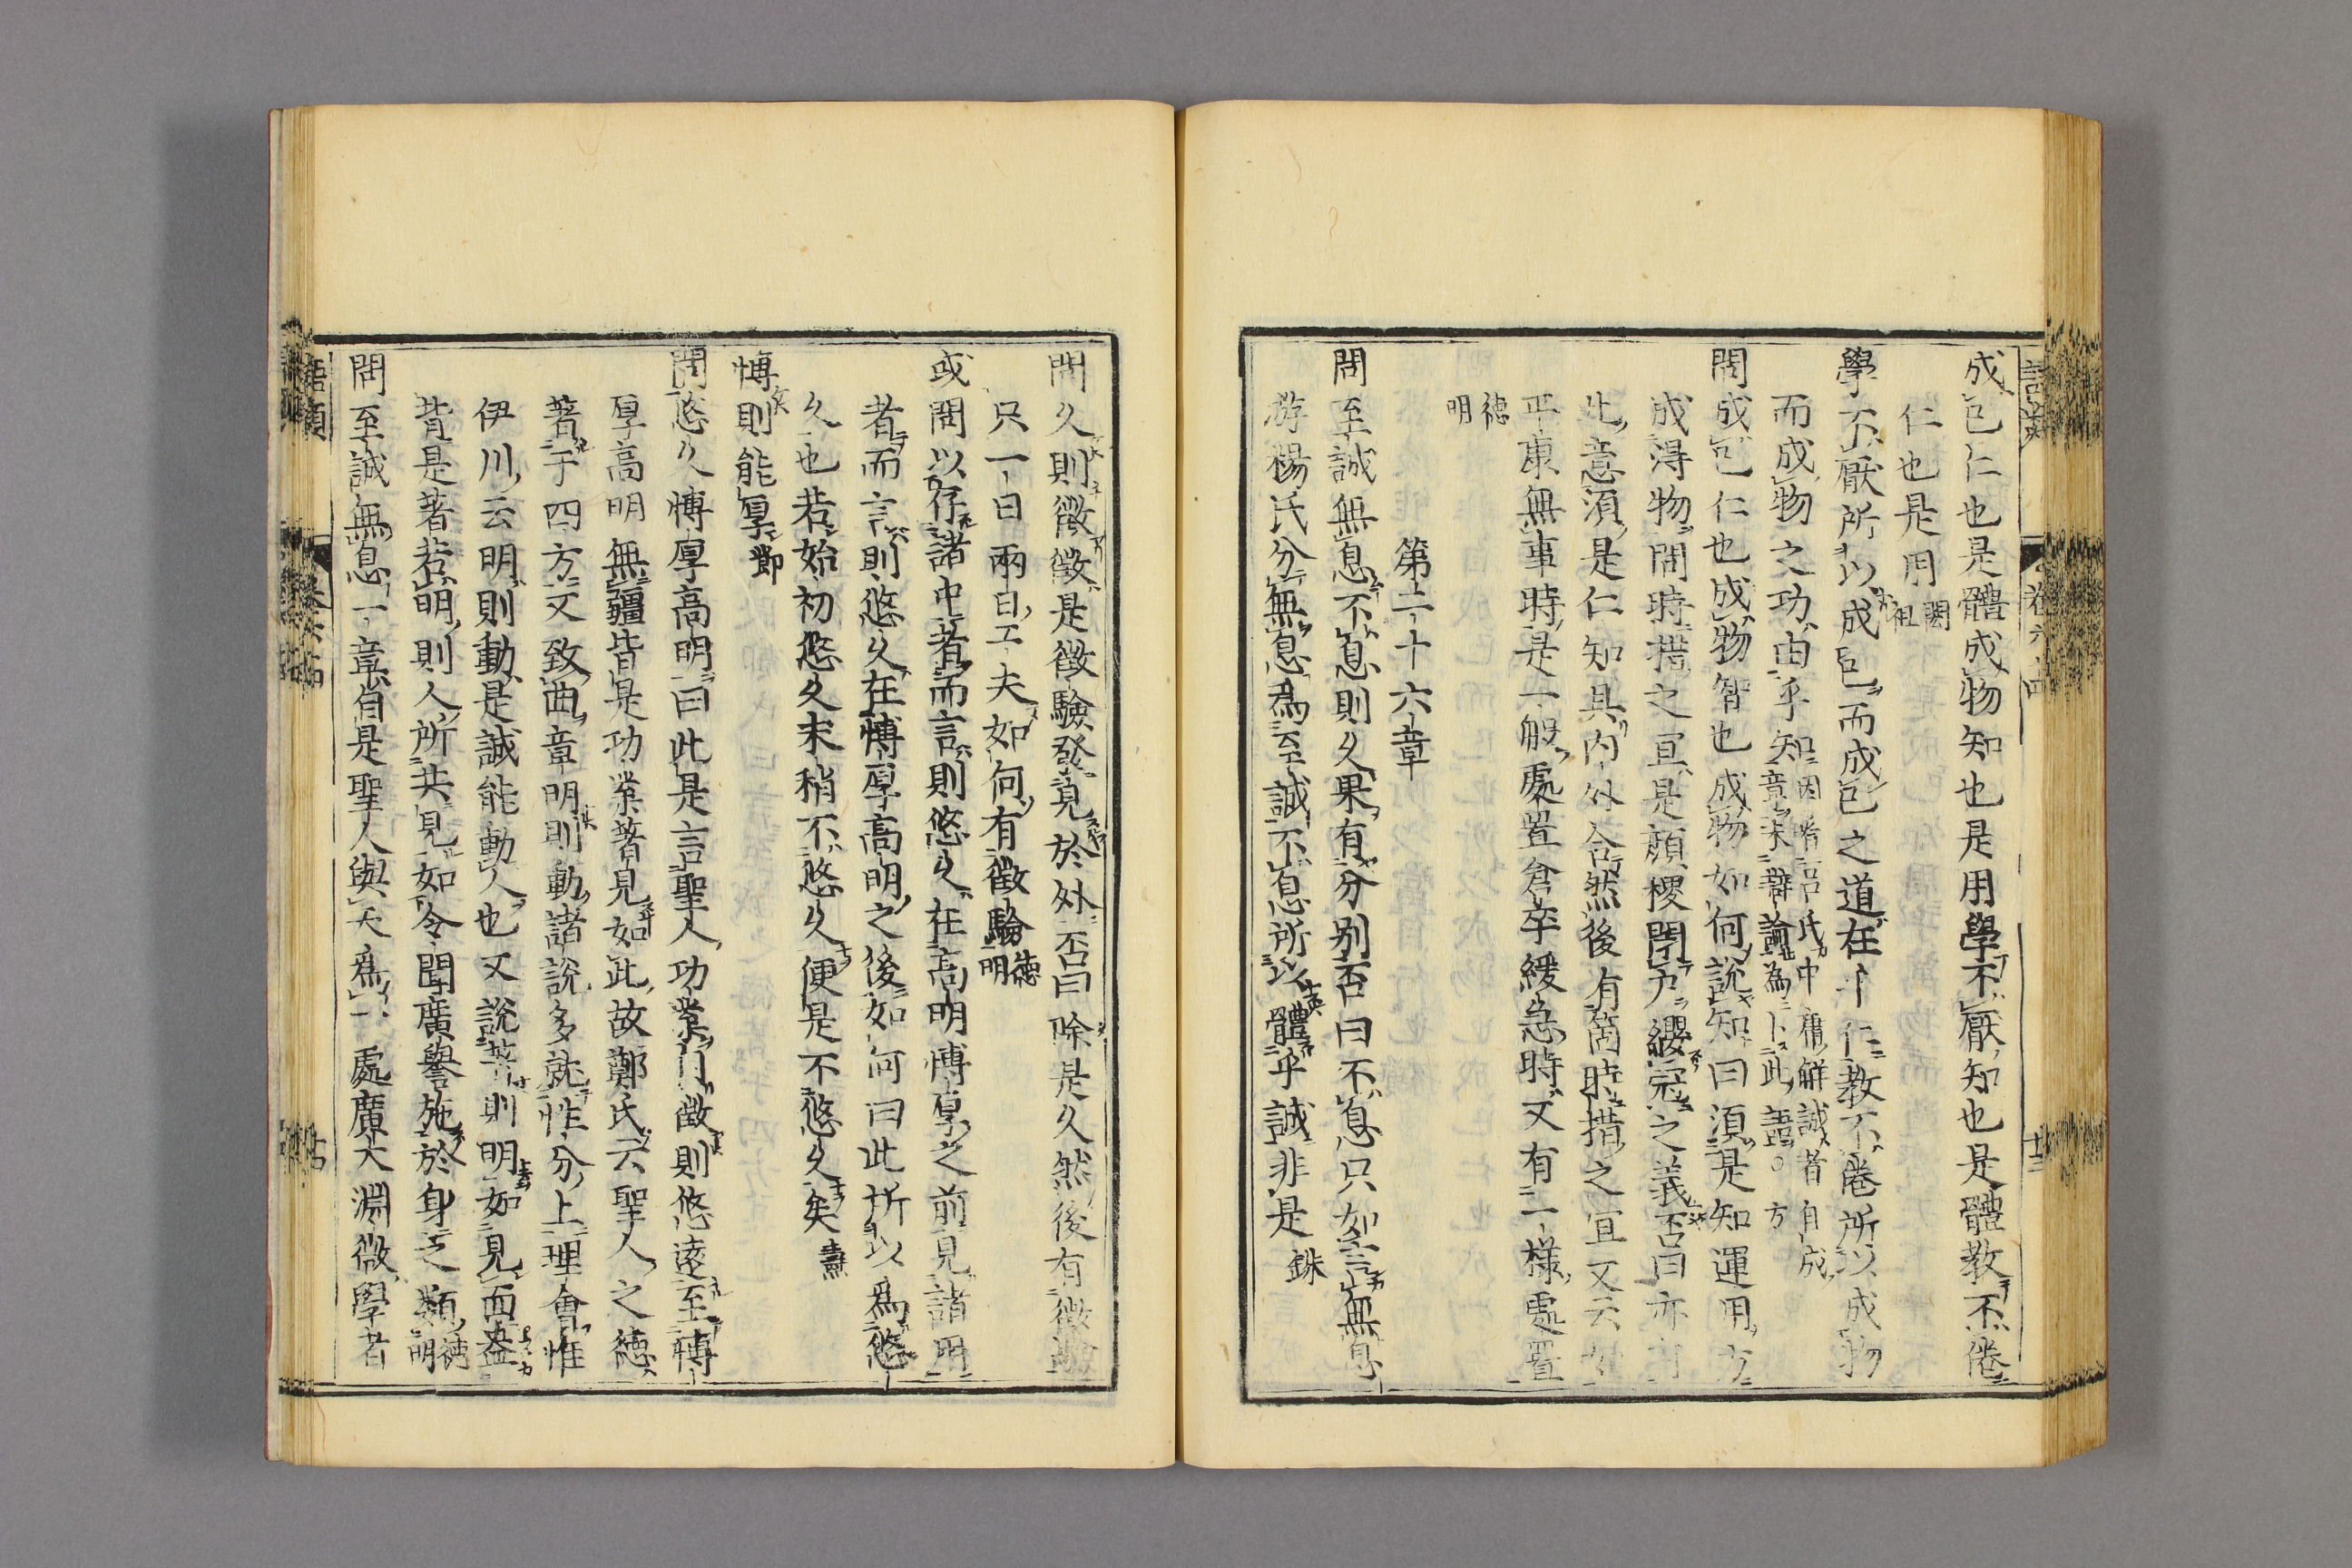 成己仁也是體成物知也是用學不厭知也是體教不倦
仁也是用閎祖
學不厭所以成己而成己之道在乎仁教不倦所以成物
而成物之功由乎知因看呂氏中庸解誠者自成章未辯論為卜此盡○方
問成己仁也成物智也成物如何說知曰須是知運用方
成得物問時措之宜是顏稷閉戶纓冠之義否曰亦有
此意須是仁知具內外合然後有箇時措之宜又云如
平康無事時是一般處置倉卒緩急時又有一樣處置
德明
第二十六章
問至誠無息不息則久果有分別否曰不息只如言無息
游楊氏分無息為至誠不息所以體乎誠非是銖
問久則徵徵是徵驗發見於外否曰除是久然後有徵驗
只一日兩日工夫如何有徵驗德明
或問以存諸中者而言則悠久在高明博厚之前見諸用
者而言則悠久在博厚高明之後如何曰此所以為悠
久也若始初悠久末稍不悠久便是不悠久矣燾
博則能厚節
問悠久博厚高明曰此是言聖人功業自徵則悠遠至博
厚高明無疆皆是功業著見如此故鄭氏云聖人之德
著于四方又致曲章明則動諸說多就性分上理會惟
伊川云明則動是誠能動人也又說著則明如見面盎
背是著若明則人所共見如令聞廣譽施於身之類德明
問至誠無息一章自是聖人與天為一處廣大淵微學者
語類
卷六十四